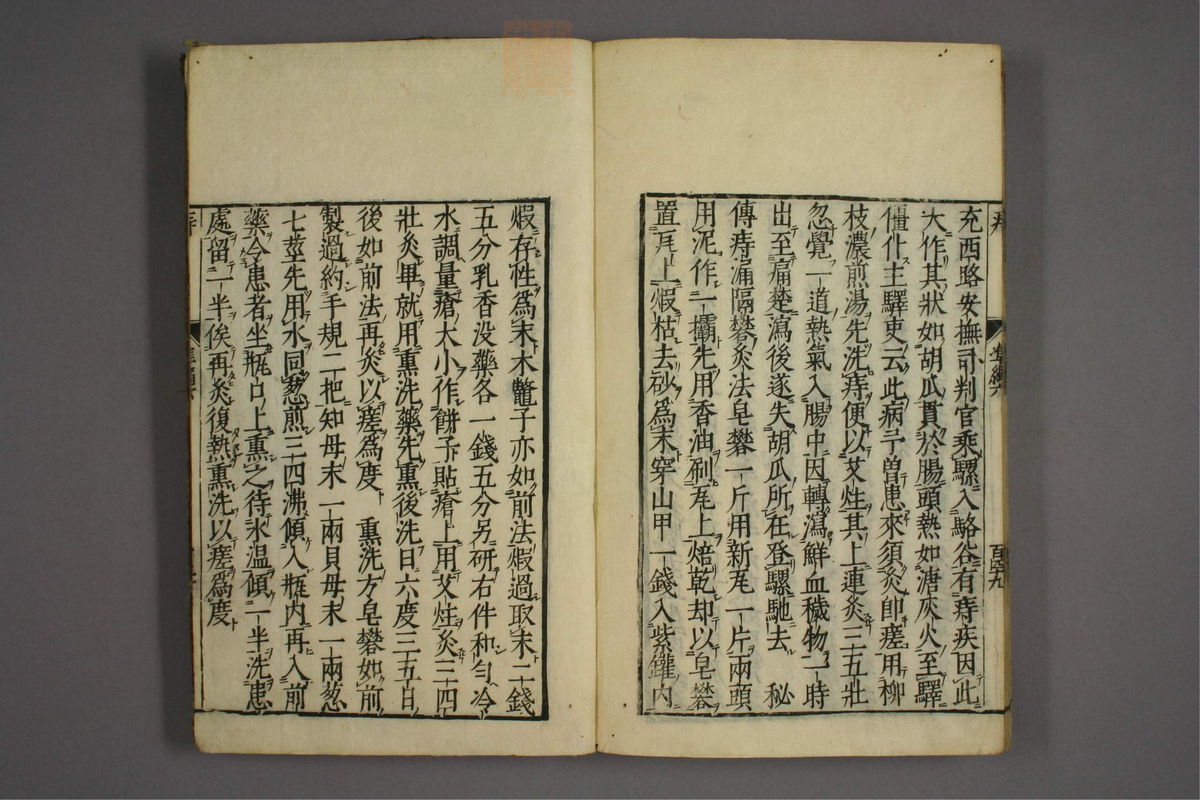 充西路安撫司判官乘騾入駱谷有痔疾因此
大作其狀如胡瓜貫於腸頭熱如溏灰火至驛
僵仆主驛吏云此病予曾患來須灸即瘥用柳
枝濃煎湯先洗痔便以艾炷其上連灸三五壯
忽覺一道熱氣入腸中因轉瀉鮮血穢物一時
出至痛楚瀉後遂失胡瓜所在登騾馳去　秘
傳痔漏隔礬灸法皂礬一斤用新瓦一片兩頭
用泥作一壩先用香油刷瓦上焙乾却以皂礬
置瓦上煅枯去砂爲末穿山甲一錢入紫鑵内
百四十九
煅存性爲末木鼈子亦如前法煅過取末二錢
五分乳香没藥各一錢五分另研右件和勻冷
水調量瘡大小作餅子貼瘡上用艾炷灸三四
壯灸畢就用熏洗藥先熏後洗日六度三五日
後如前法再灸以瘥爲度　熏洗方皂礬如前
製過約手規二把知母末一兩貝母末一兩葱
七莖先用水同葱煎三四沸傾入瓶内再入前
藥令患者坐瓶口上熏之待水温傾一半洗患
處留一半俟再灸復熱熏洗以瘥爲度